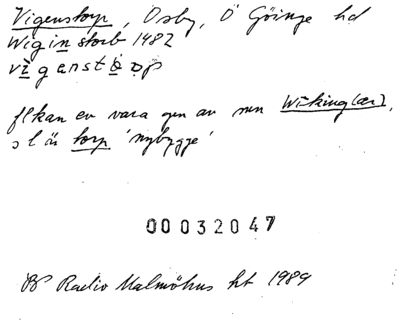 Vigenstorp, Osby, Ö Göinge hd
Wiginstorb 1482
vìganstòrp
flkan ev vara gen av mn Wiking(ar),
sl är torp 'nybygge'
00032047
BP Radio Malmöhus ht 1989